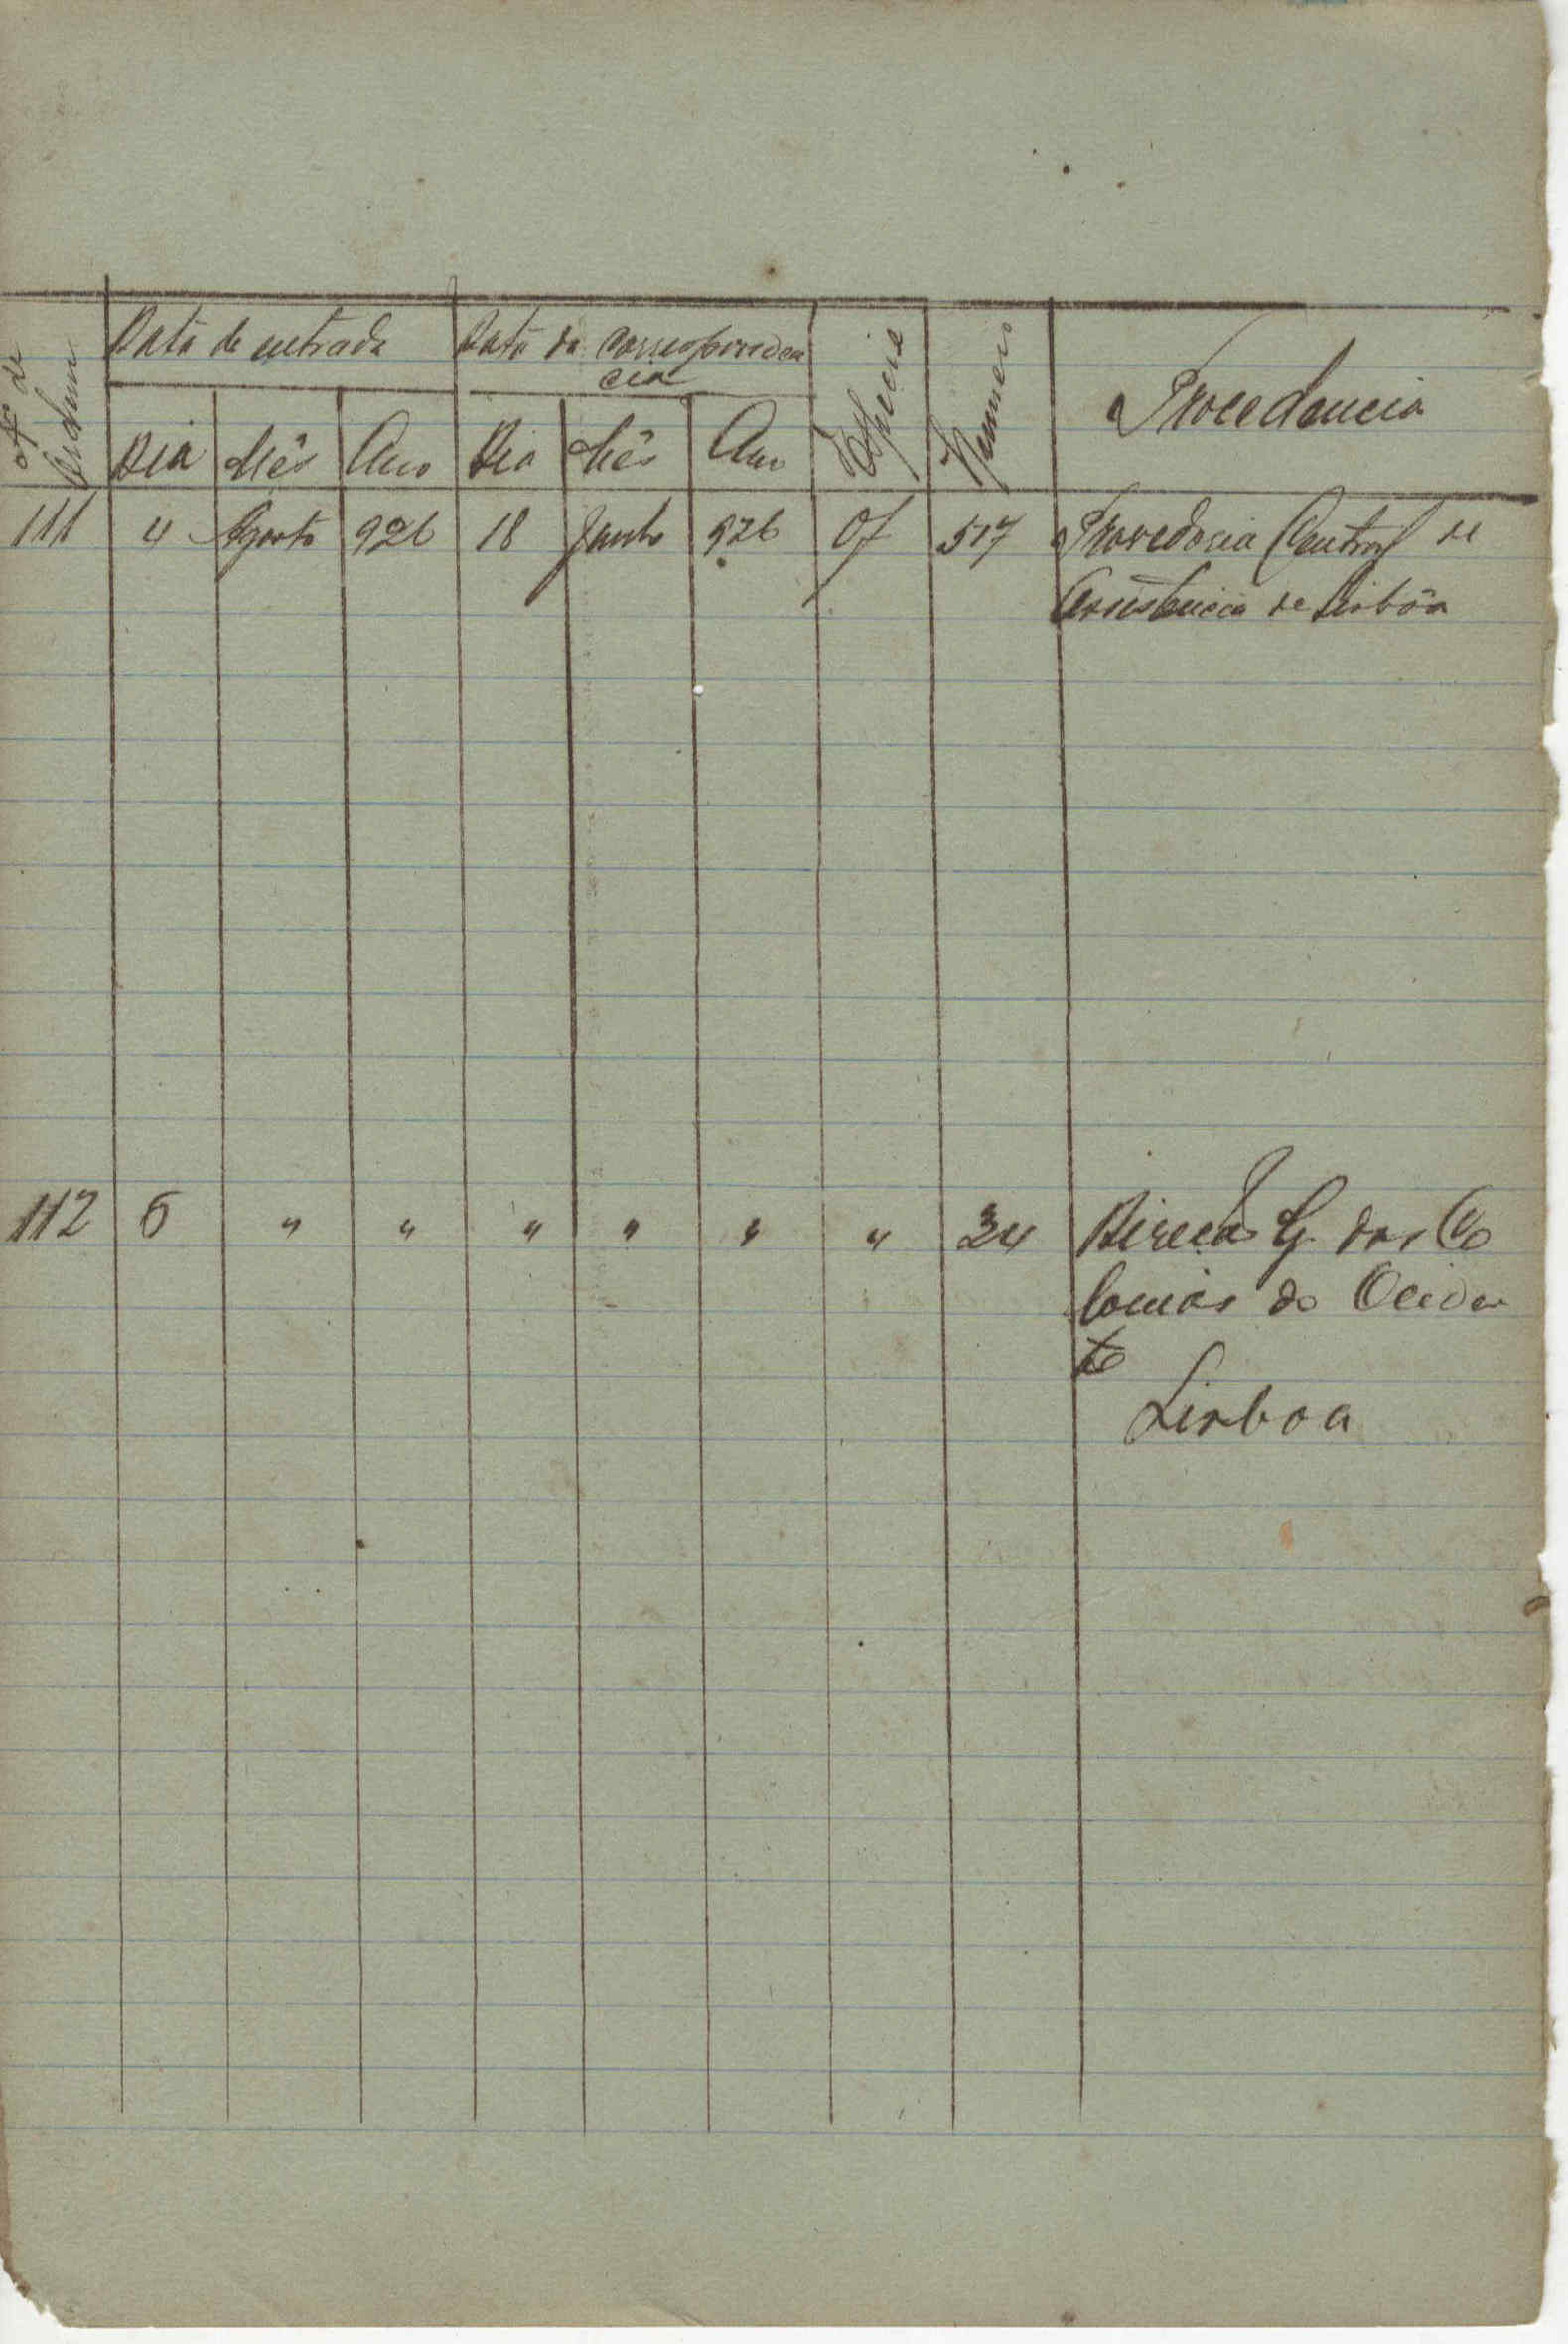 Nº de Ordem
Data de entrada Data da correspondencia
Dia Mês Ano Dia Mês Ano Especie Numero Procedencia
111 4 Agosto 926 18 Junho 926 Of 517 Provedoria Central de
Assistencia de Lisbôa
112 6 " " " " " " 34 Direcão G. das Co
lonias do Ociden
te
Lisboa